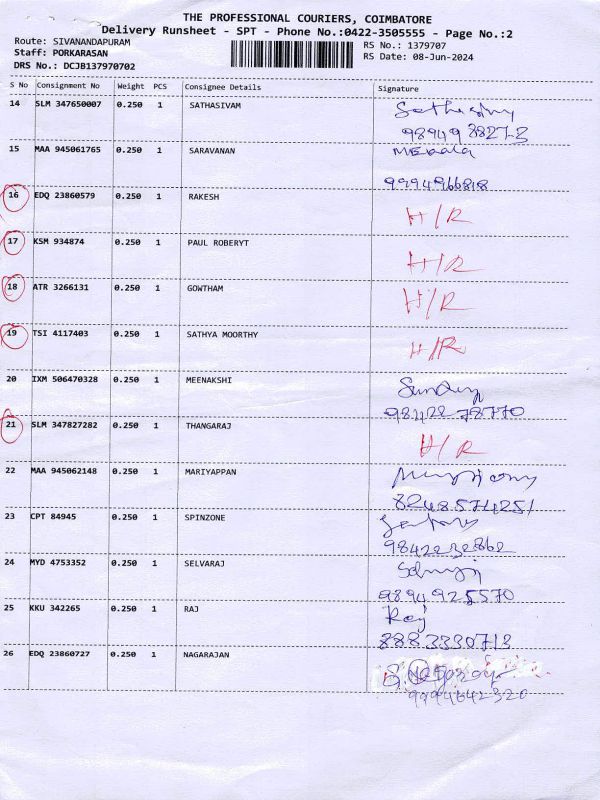 THE PROFESSIONAL COURIERS, COIMBATORE
Delivery Runsheet - SPT - Phone No.:0422-3505555 - Page No.:2
Route: SIVANANDAPURAM
Staff: PORKARASAN
DRS No.: DCJB137970702
RS No.: 1379707
RS Date: 08-Jun-2024
S No Consignment No Weight PCS Consignee Details Signature
14 SLM 347650007 0.250 1 SATHASIVAM
9894988273
15 MAA 945061765 0.250 1 SARAVANAN Mekala
9994966818
16 EDQ 23860579 0.250 1 RAKESH H/R
17 KSM 934874 0.250 1 PAUL ROBERYT H/R
18 ATR 3266131 0.250 1 GOWTHAM H/R
19 TSI 4117403 0.250 1 SATHYA MOORTHY H/R
20 IXM 506470328 0.250 1 MEENAKSHI
9842278770
21 SLM 347827282 0.250 1 THANGARAJ H/R
22 MAA 945062148 0.250 1 MARIYAPPAN
8248574251
23 CPT 84945 0.250 1 SPINZONE
9842232862
24 MYD 4753352 0.250 1 SELVARAJ
9894925570
25 KKU 342265 0.250 1 RAJ Raj
8883330713
26 EDQ 23860727 0.250 1 NAGARAJAN
9994642320